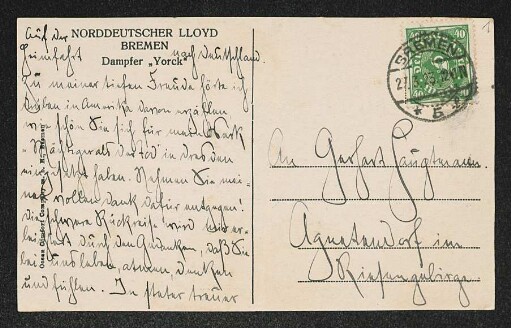 Auf der
Heimfahrt
nach Deutschland.
NORDDEUTSCHER LLOYD
BREMEN
Dampfer „Yorck"
Zu meiner tiefen Freude hörte ich
drüben in Amerika davon erzählen
wie schön Sie sich für mein Werk
der Tod in Dresden
eingesetzt haben. Nehmen Sie mei-
nen vollen Dank dafür entgegen!
Die schwere Rückreise wird mir er-
leichtert durch den Gedanken, daß Sie
bei uns leben, atmen, denken
und fühlen. In steter treuer
An Gerhart Hauptmann
Agnetendorf im
Riesengebirge
BREMEN
40
40